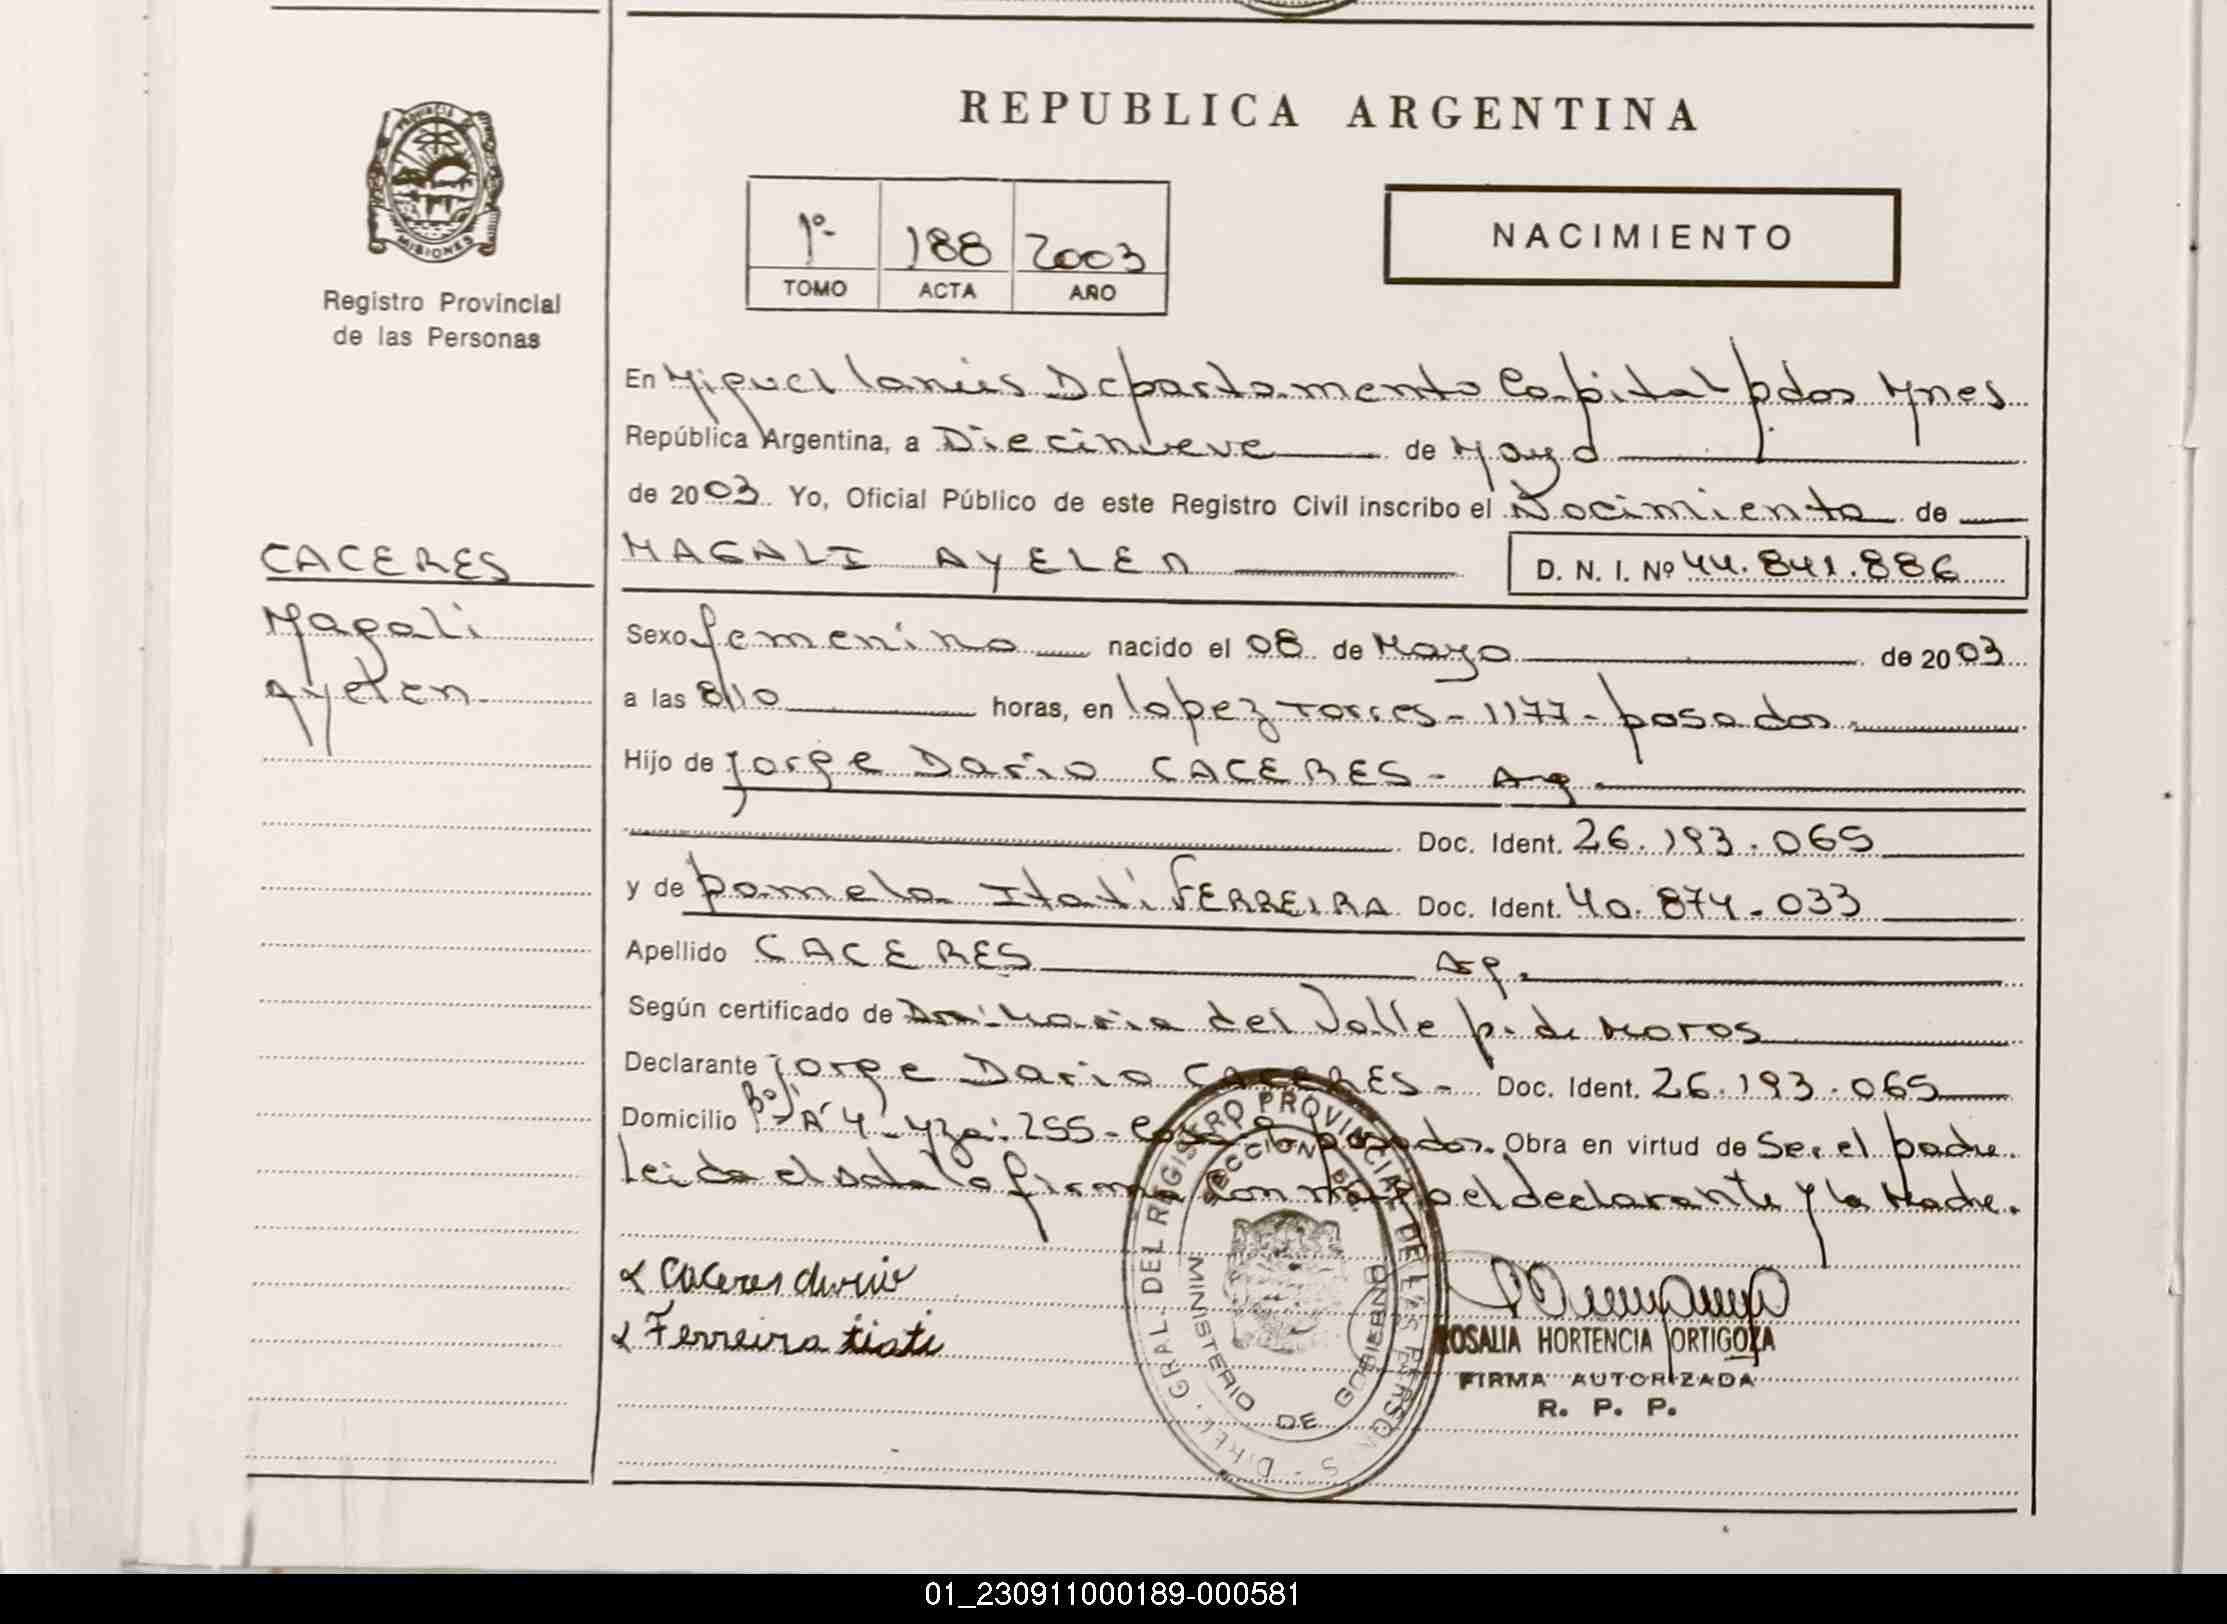 REPUBLICA ARGENTINA
PROVINCIA DE MISIONES
Registro Provincial
de las Personas
1º 188 2003
TOMO ACTA AÑO
NACIMIENTO
En Miguel Lanús Departamento Capital pdas Mnes
República Argentina, a Diecinueve de Mayo
de 2003. Yo, Oficial Público de este Registro Civil inscribo el Nacimiento de
CACERES
Magali
Ayelen
MAGALI AYELEN D. N. I. Nº 44.841.886
Sexo femenino nacido el 08 de Mayo de 2003
a las 8/10 horas, en Lopez Torres - 1177 - posadas
Hijo de Jorge Dario CACERES - Arg.
Doc. Ident. 26.193.065
y de pamela Itatí FERREIRA Doc. Ident. 40.874.033
Apellido CACERES Arg.
Según certificado de Maria del Valle p. de Moros
Declarante Jorge Dario CACERES - Doc. Ident. 26.193.065
Domicilio Bº A 4 - Mza: 255 - Casa posadas. Obra en virtud de Ser el padre.
Leida el acta la firma conmigo el declarante y la Madre.
Caceres dario
Ferreira itati
DIREC. GRAL. DEL REGISTRO PROVINCIAL DE LAS PERSONAS
SECCION
MINISTERIO DE GOBIERNO
ROSALIA HORTENCIA ORTIGOZA
FIRMA AUTORIZADA
R. P. P.
01_230911000189-000581